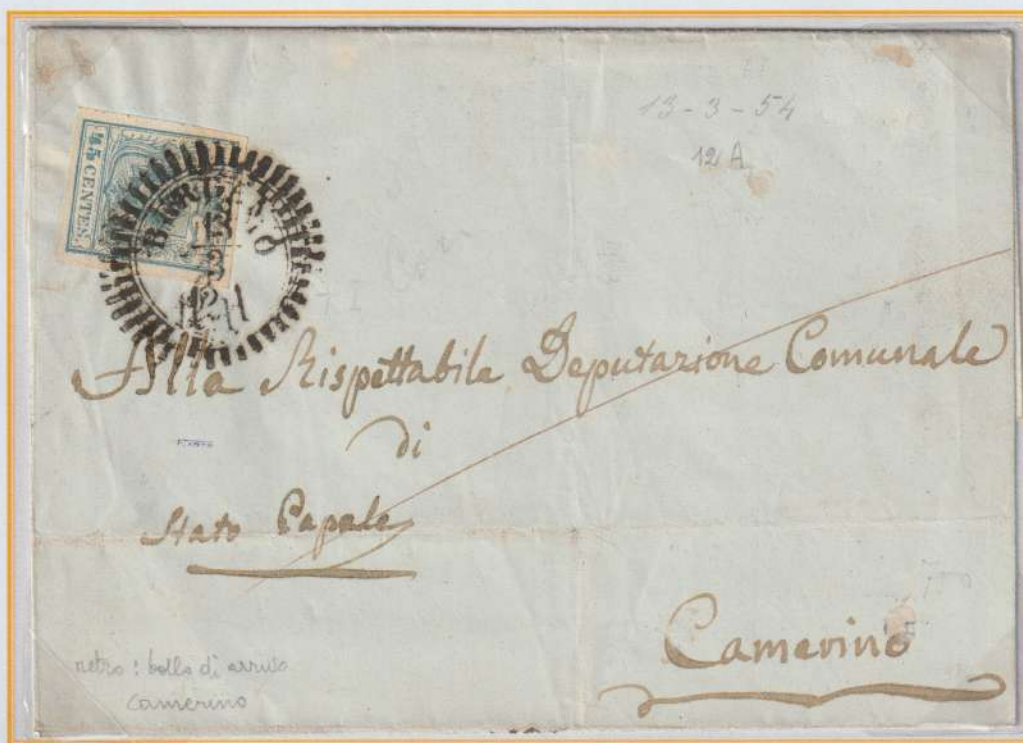 13-3-54
12 A
45 CENTES.
BERGAMO
13
3
Alla Rispettabile Deputazione Comunale
di
Stato Papale
Camerino
retro: bollo di arrivo
Camerino